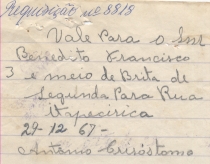 Requisição nº 8818
Vale Para o Snr
Benedito Francisco
3 e meio de Brita de
segunda Para Rua
Itapecirica
29-12 67-
Antonio Crisóstomo